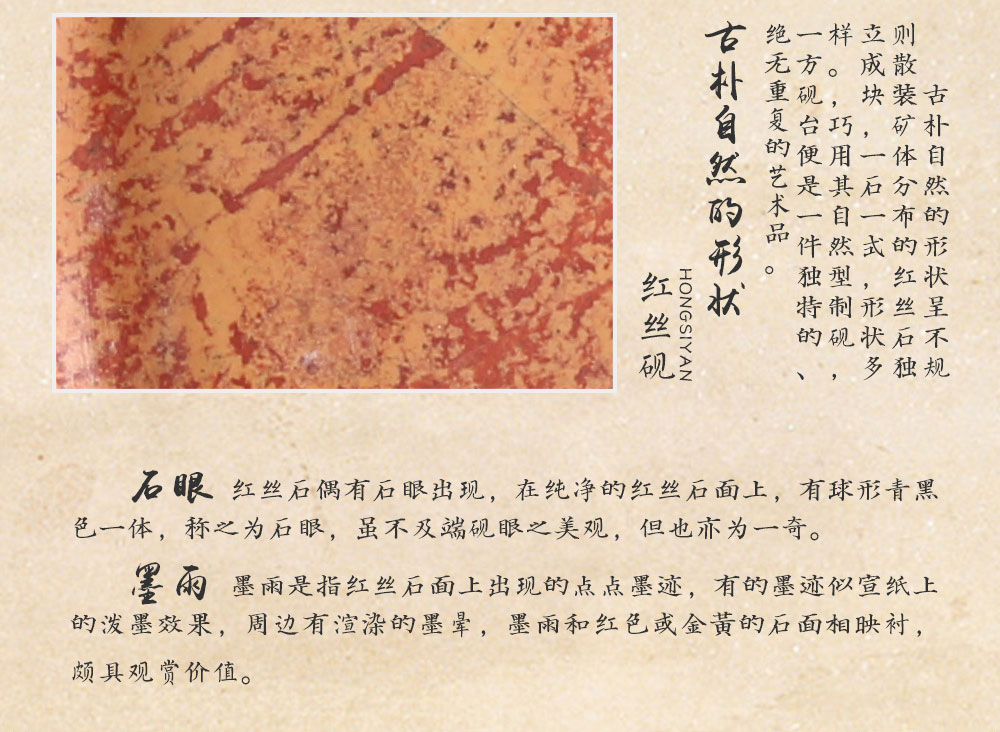 古朴自然的形状呈不规
则散装矿体分布的红丝石独
立成块，一石一式，形状多
样。，巧用其自然型制砚，
一方砚台便是一件独特的、
绝无重复的艺术品。
古朴自然的形状
HONGSIYAN
红丝砚
石眼 红丝石偶有石眼出现，在纯净的红丝石面上，有球形青黑
色一体，称之为石眼，虽不及端砚眼之美观，但也亦为一奇。
墨雨 墨雨是指红丝石面上出现的点点墨迹，有的墨迹似宣纸上
的泼墨效果，周边有渲染的墨晕，墨雨和红色或金黄的石面相映衬，
颇具观赏价值。